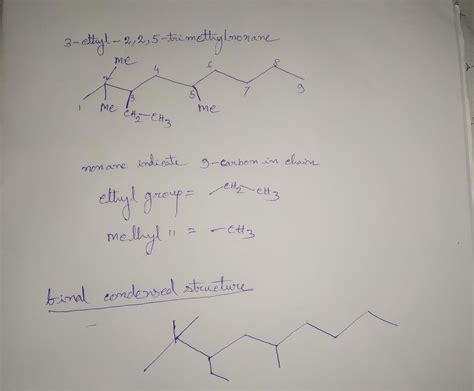 3-ethyl-2,2,5-trimethylnonane
Me
2
4
6
8
1
Me
3
5
Me
7
9
CH2-CH3
nonane indicate 9-carbon in chain
ethyl group = -CH2-CH3
methyl " = -CH3
final condensed structure